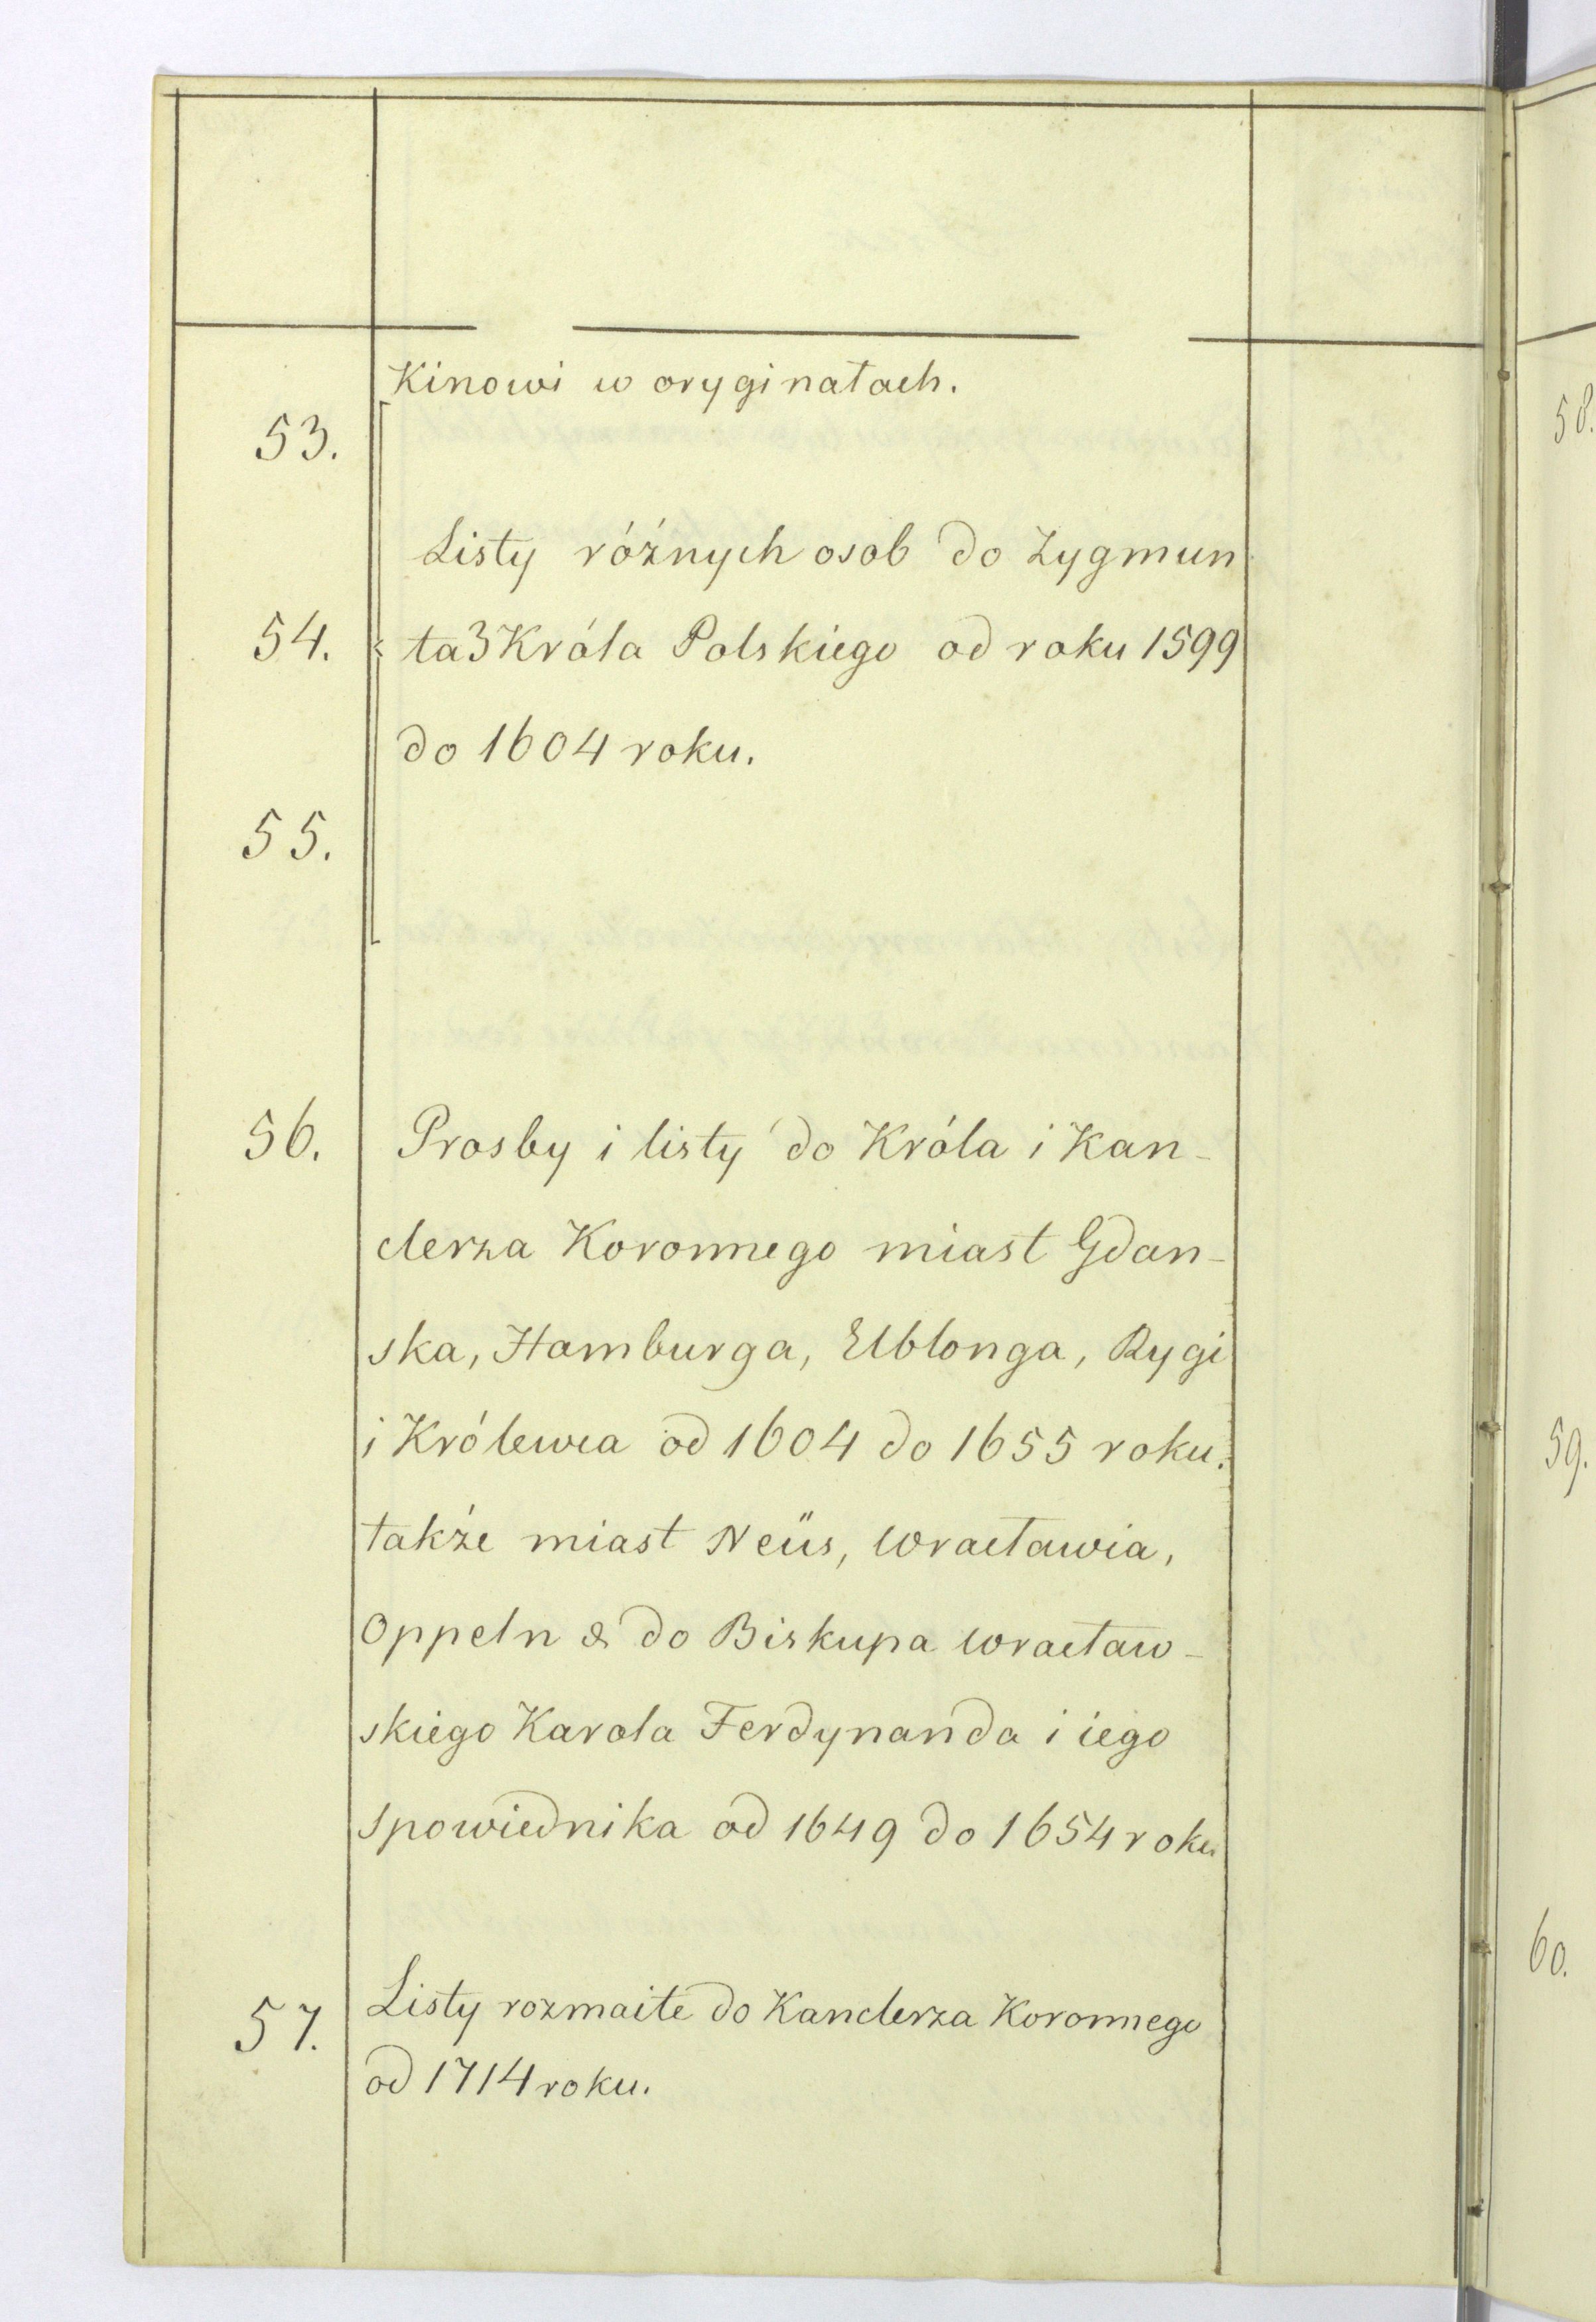 Kinowi w oryginałach.
53.
Listy różnych osob do Zygmun
54. ta 3 Króla Polskiego od roku 1599
do 1604 roku.
55.
56. Prosby i listy do Króla i Kan-
clerza Koronnego miast Gdan-
ska, Hamburga, Elblonga, Rygi
i Królewca od 1604 do 1655 roku.
także miast Neüs, Wracławia,
Oppeln & do Biskupa Wracław-
skiego Karola Ferdynanda i iego
spowiednika od 1649 do 1654 roku
57. Listy rozmaite do Kanclerza Koronnego
od 1714 roku.
58.
59.
60.